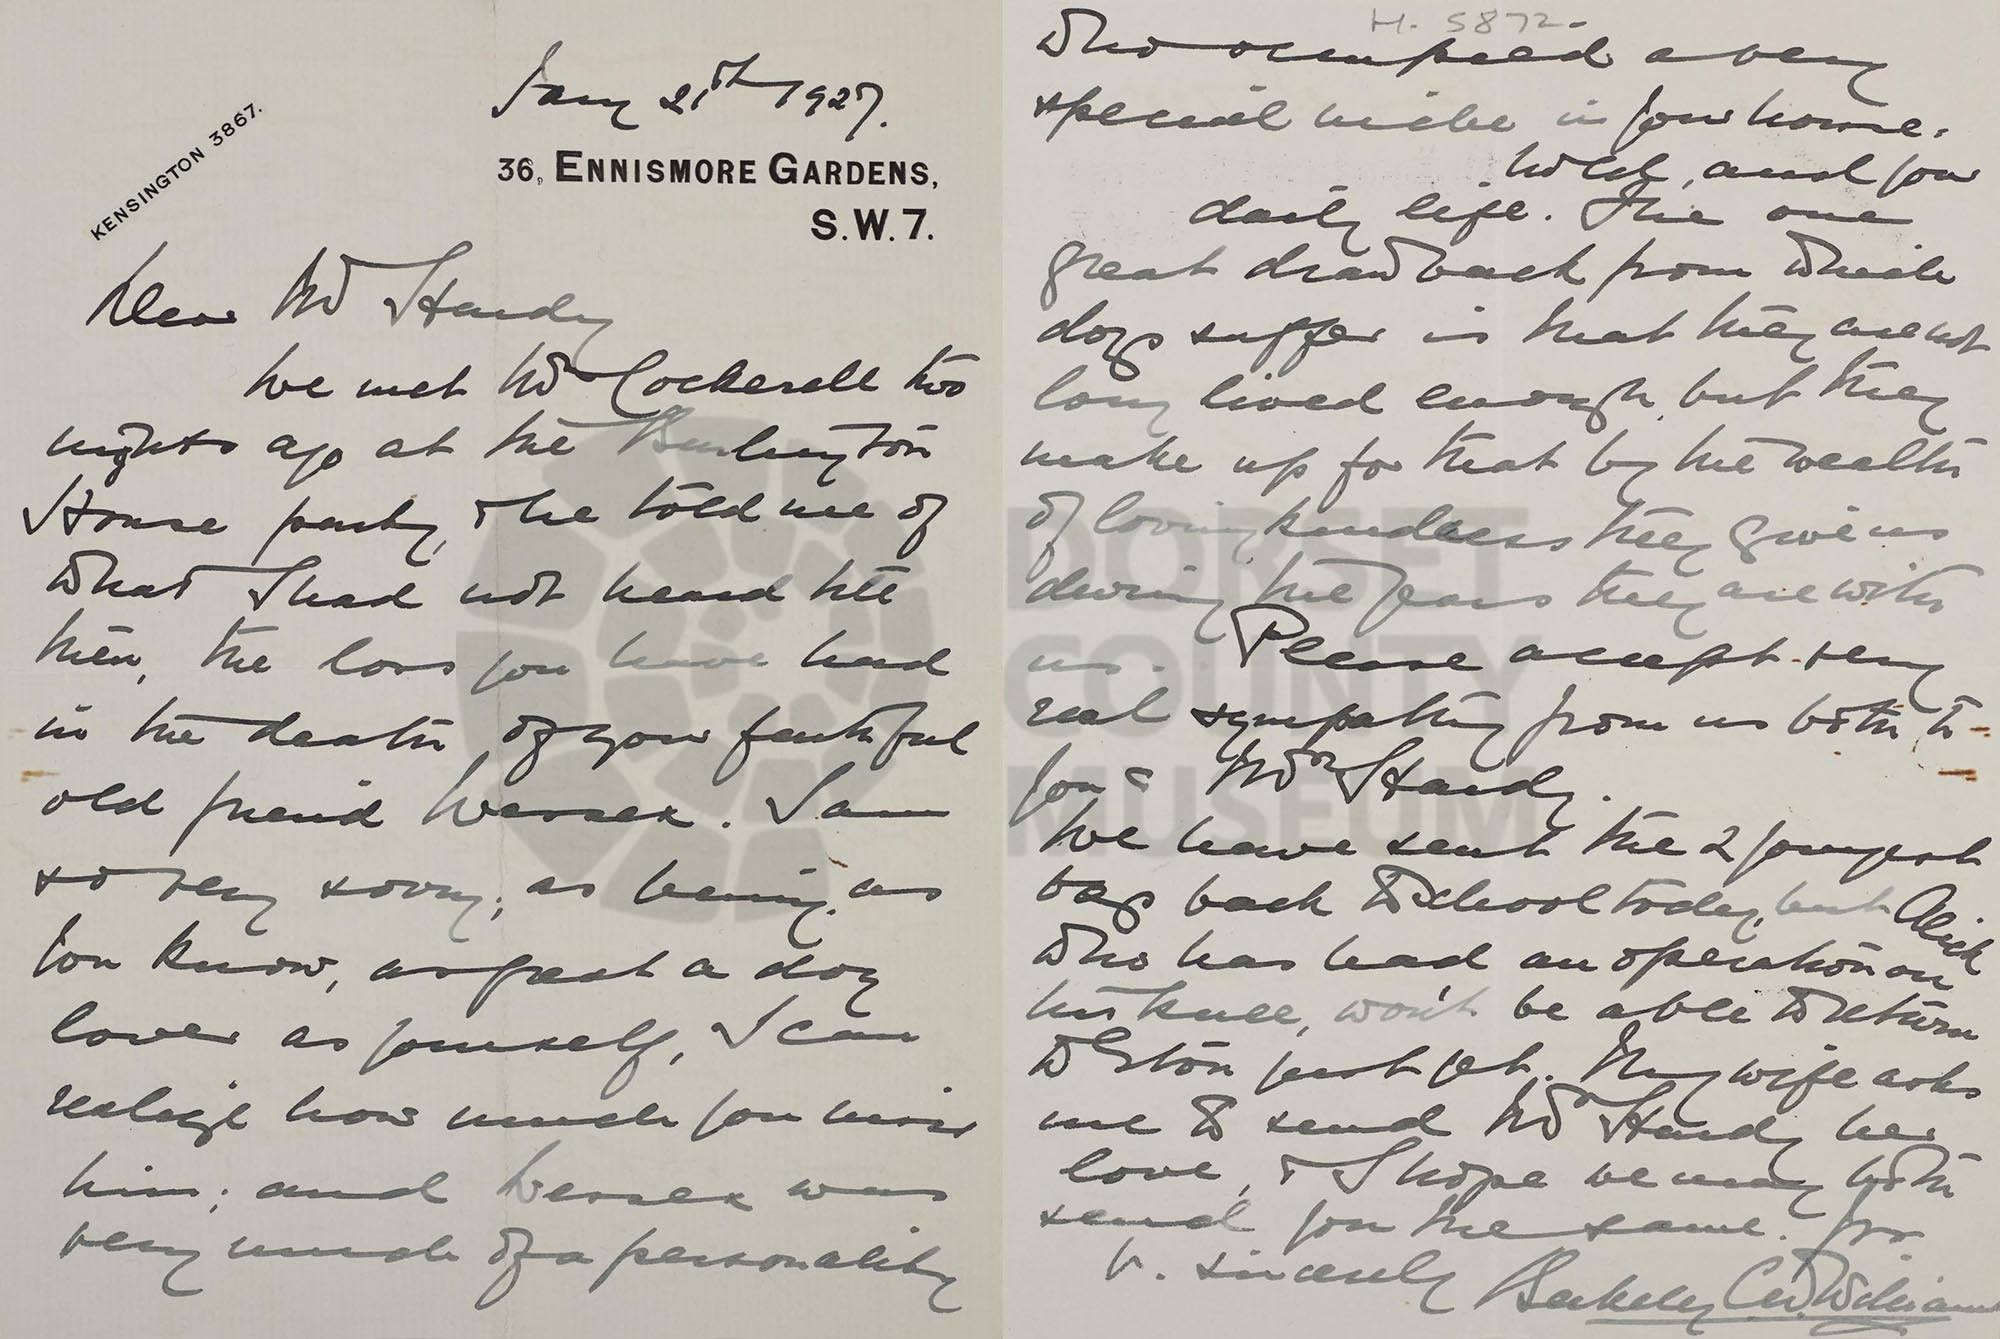 Jany 21st 1927.
KENSINGTON 3867.
36, ENNISMORE GARDENS,
S.W.7.
Dear Mr Hardy
We met Mr Cockerell two
nights ago at the Burlington
House party, & he told me of
what I had not heard till
then, the loss you have had
in the death of your faithful
old friend Wessex. I am
so very sorry, as being, as
you know, as great a dog
lover as yourself, I can
realize how much you miss
him; and Wessex was
very much of a personality
H. 5872.
who occupied a very
special niche in your house-
hold, and your
daily life. The one
great drawback from which
dogs suffer is that they are not
long lived enough, but they
make up for that by the wealth
of loving kindness they give us
during the years they are with
us. Please accept very
real sympathy from us both to
you & Mrs Hardy.
We have sent the 2 youngest
boys back to school today, but Alick
who has had an operation on
his knee, won't be able to return
to Eton just yet. My wife asks
me to send Mrs Hardy her
love, & I hope we may both
send you the same. Yrs
v. sincerely Berkeley C. W. Williams
DORSET
COUNTY
MUSEUM